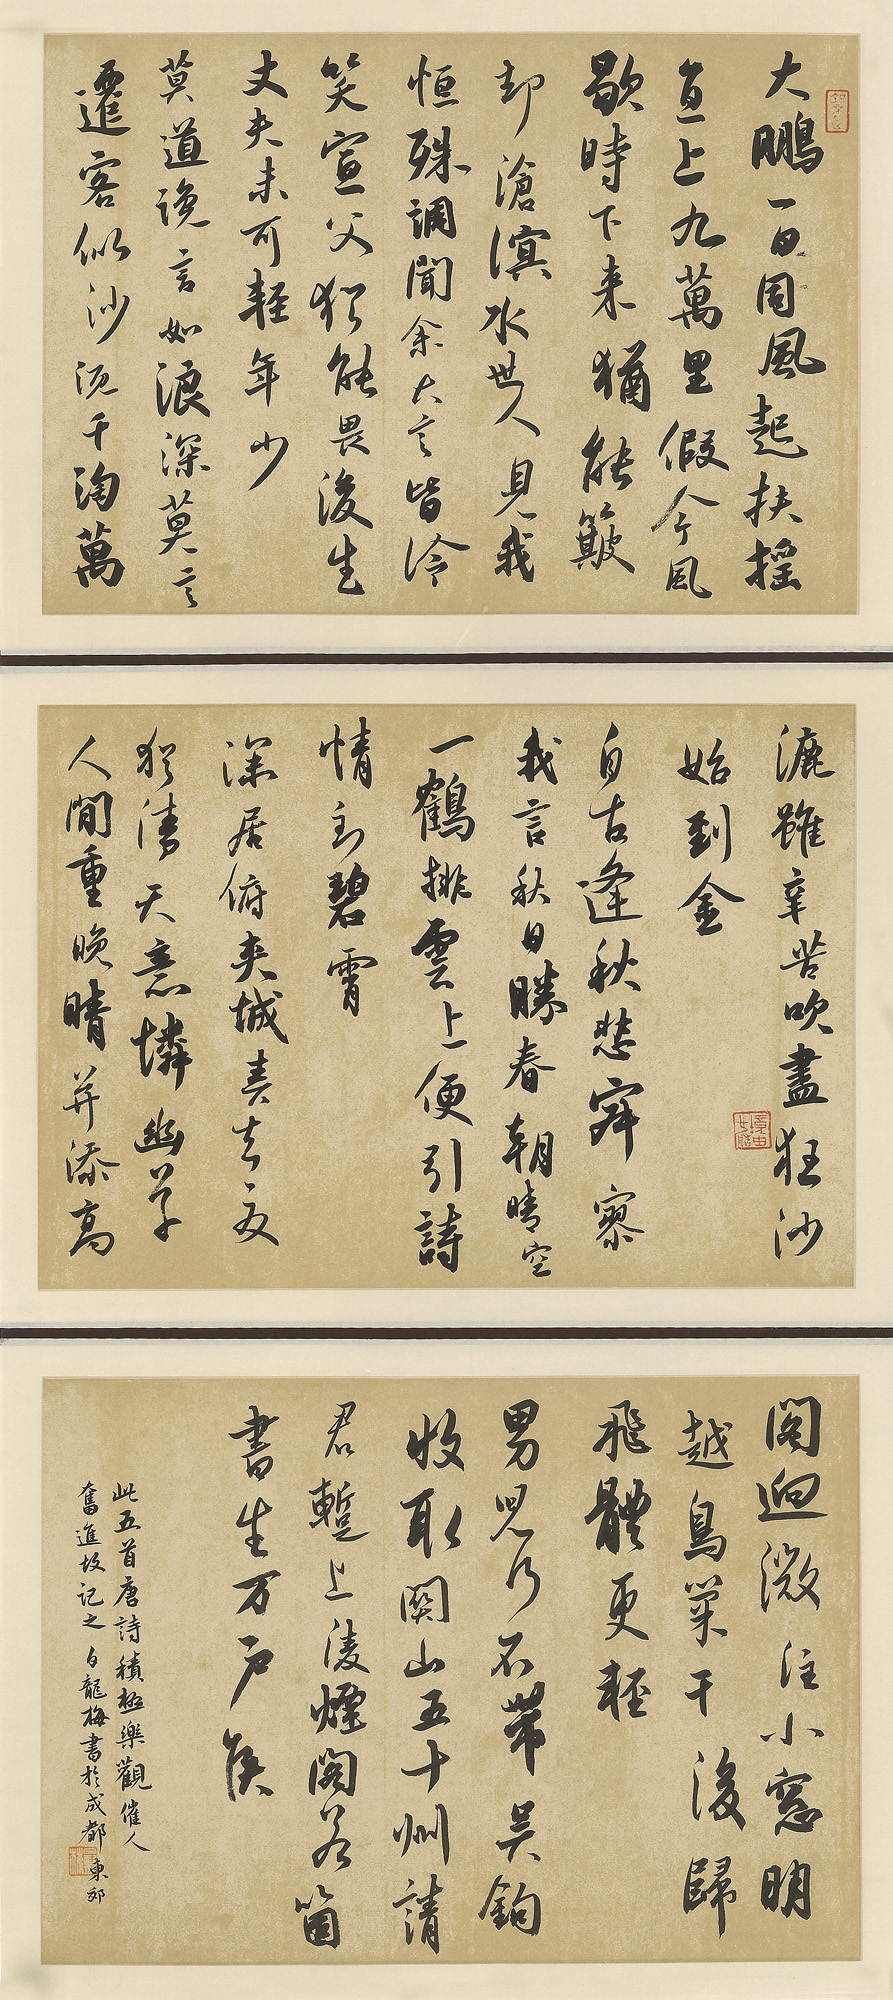 大鵬一日同風起扶摇
直上九萬里假令風
歇時下来猶能簸
却滄溟水世人見我
恒殊調聞余大言皆冷
笑宣父猶能畏後生
丈夫未可輕年少
莫道讒言如浪深莫言
遷客似沙沉千淘萬
漉雖辛苦吹盡狂沙
始到金
自古逢秋悲寂寥
我言秋日勝春朝晴空
一鶴排雲上便引詩
情到碧霄
深居俯夾城春去夏
猶清天意憐幽草
人間重晚晴并添高
閣迥微注小窓明
越鳥巢干後歸
飛體更輕
男兒何不帶吴鉤
收取關山五十州請
君暫上凌煙閣若箇
書生万户侯
此五首唐詩積極樂觀催人
奮進故記之 白龍梅書於成都東郊